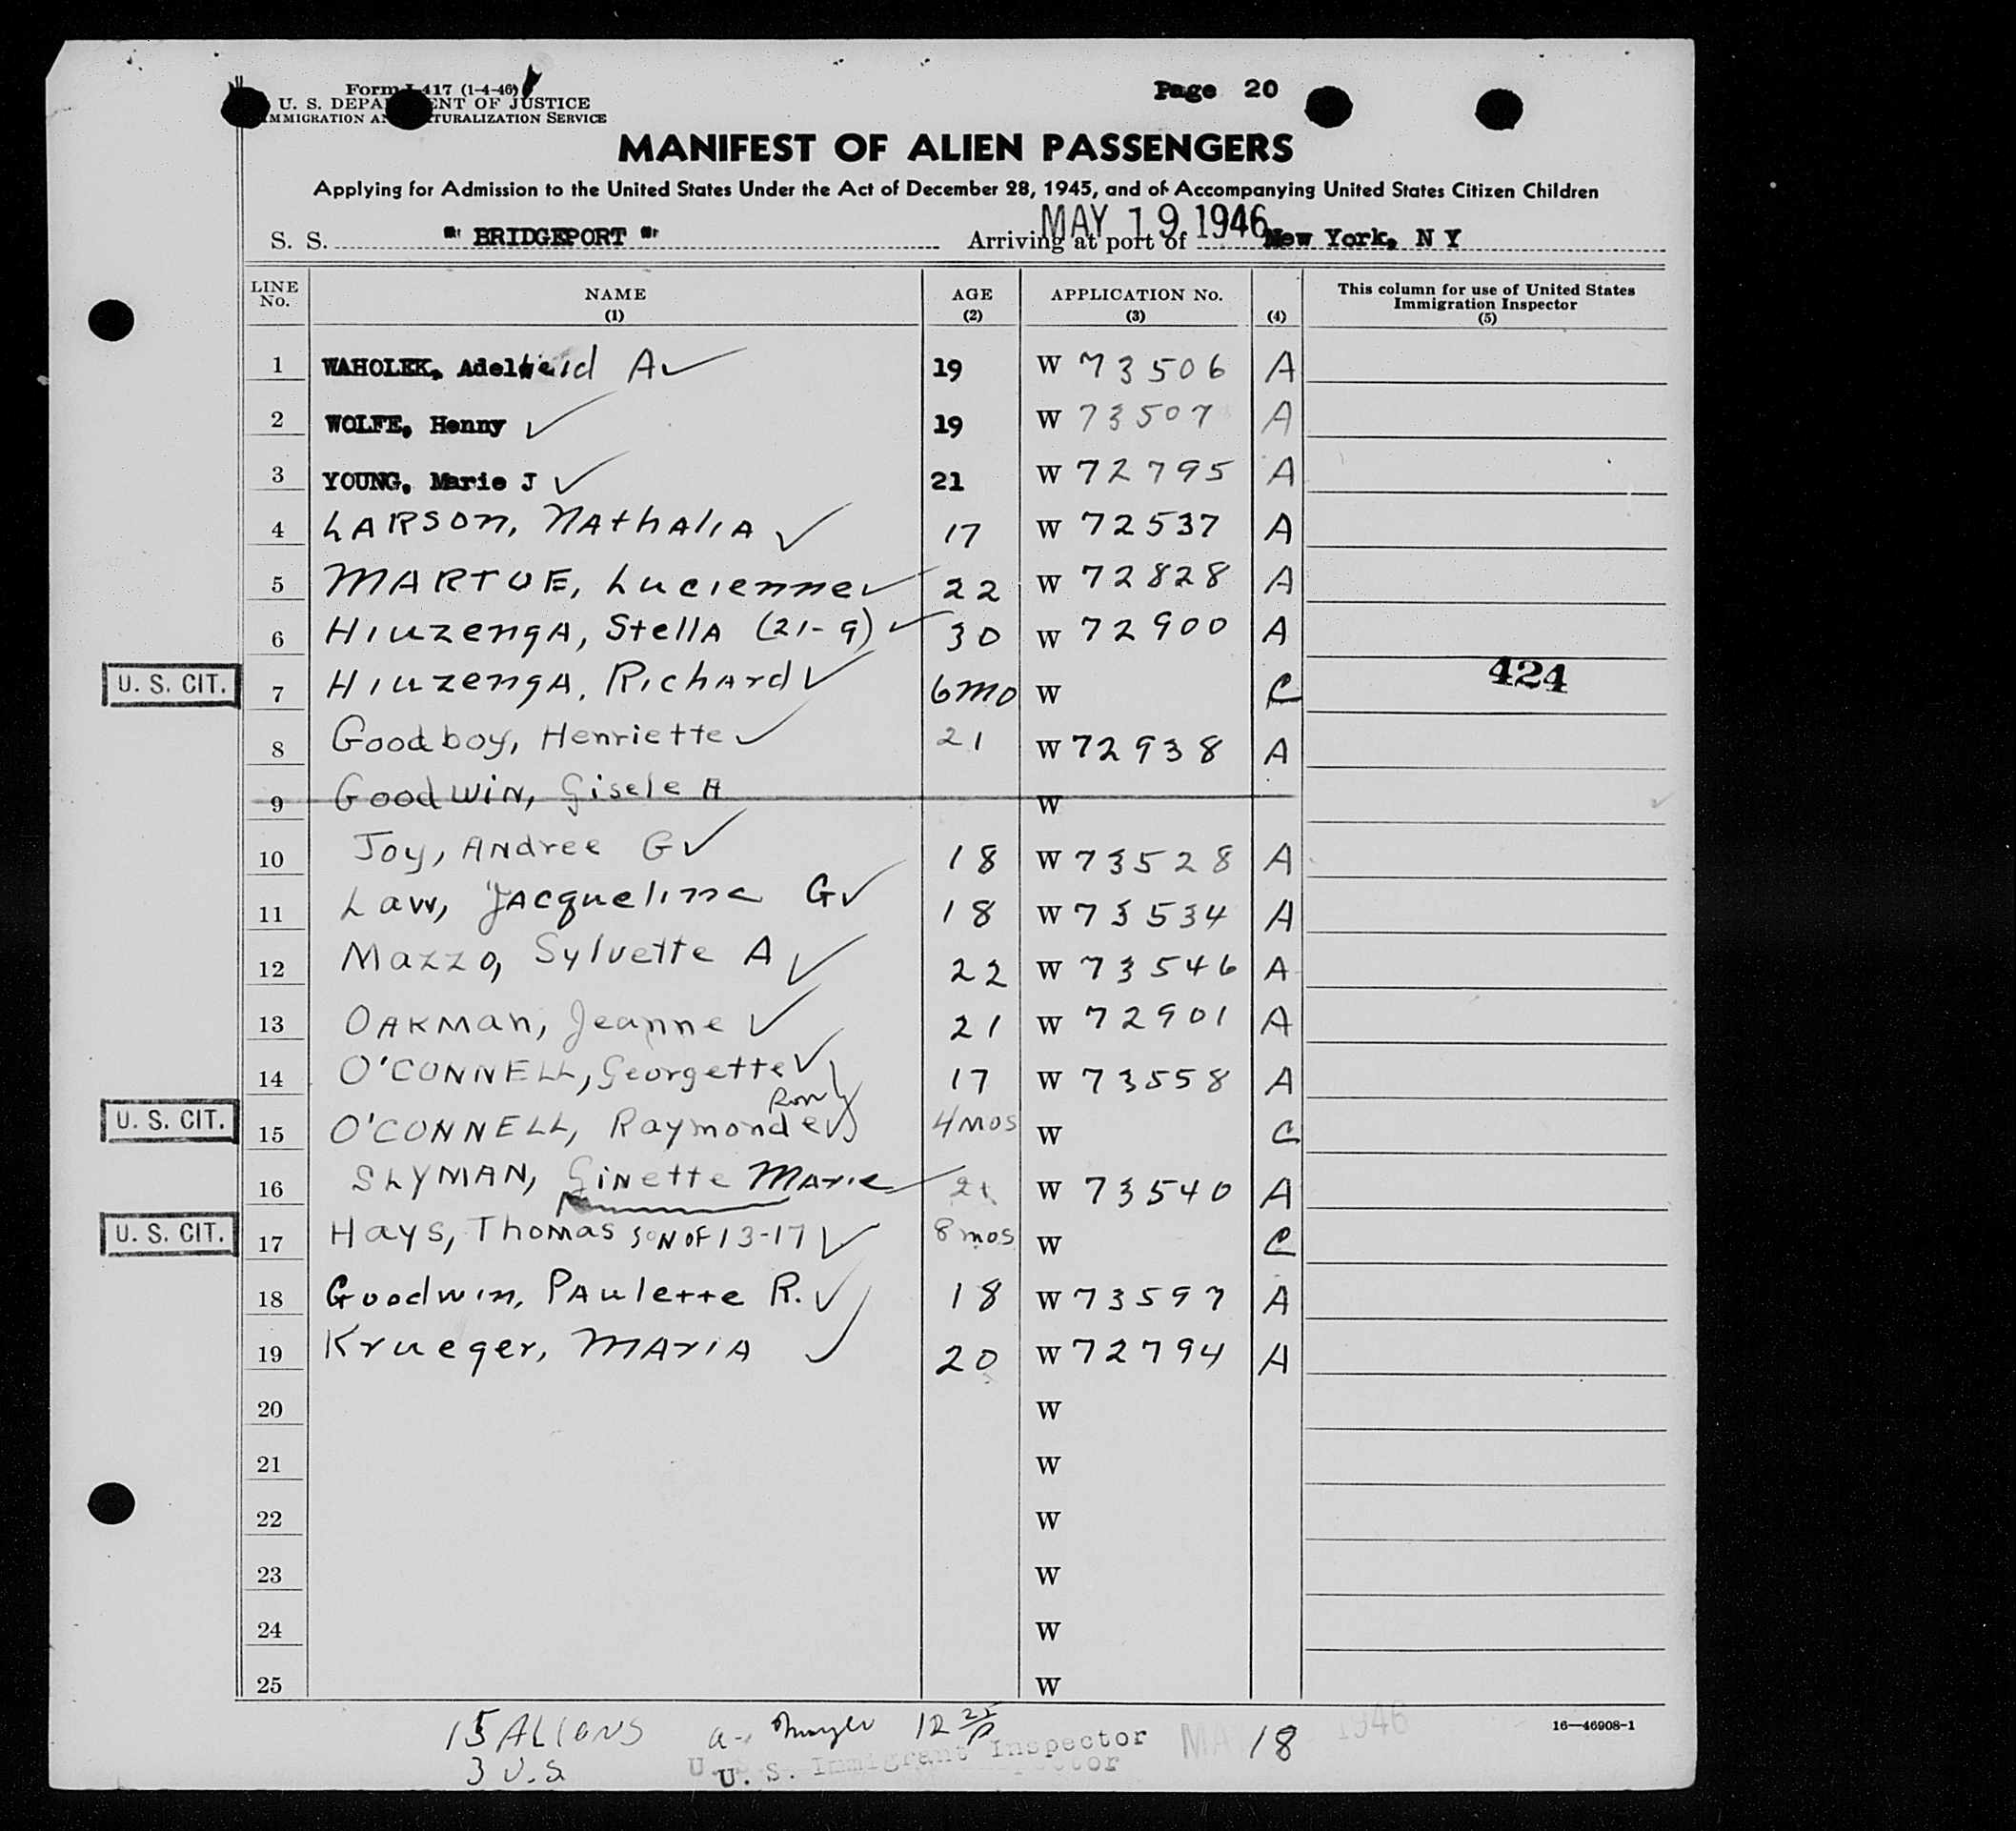 Form I-417 (1-4-46)
U. S. DEPARTMENT OF JUSTICE
IMMIGRATION AND NATURALIZATION SERVICE
Page 20
MANIFEST OF ALIEN PASSENGERS
Applying for Admission to the United States Under the Act of December 28, 1945, and of Accompanying United States Citizen Children
S. S. " BRIDGEPORT " Arriving at port of MAY 19 1946 New York, N Y
LINE No. NAME (1) AGE (2) APPLICATION No. (3) (4) This column for use of United States Immigration Inspector (5)
1 WAHOLEK, Adelheid A ✓ 19 W 73506 A
2 WOLFE, Henny ✓ 19 W 73507 A
3 YOUNG, Marie J ✓ 21 W 72795 A
4 LARSON, NAthALIA ✓ 17 W 72537 A
5 MARTUE, Lucienne ✓ 22 W 72828 A
6 HIUZENGA, StellA (21-9) ✓ 30 W 72900 A
U. S. CIT. 7 HIUZENGA, RIchArd ✓ 6 mo W C 424
8 Goodboy, Henriette ✓ 21 W 72938 A
9 GoodWIN, Gisele A W
10 Joy, ANdree G ✓ 18 W 73528 A
11 Law, JAcqueline G ✓ 18 W 73534 A
12 Mazzo, Sylvette A ✓ 22 W 73546 A
13 OAKMan, Jeanne ✓ 21 W 72901 A
14 O'CONNELL, Georgette ✓ 17 W 73558 A
U. S. CIT. 15 O'CONNELL, Raymonde ✓ 4 mos W C
16 SLYMAN, GiNette MArie 21 W 73540 A
U. S. CIT. 17 Hays, Thomas SON OF 13-17 ✓ 8 mos W C
18 Goodwin, PAulette R. ✓ 18 W 73597 A
19 Krueger, MArIA ✓ 20 W 72794 A
20 W
21 W
22 W
23 W
24 W
25 W
15 ALIENS 12 25 18 16—46908-1
3 U.S
U. S. Immigrant Inspector